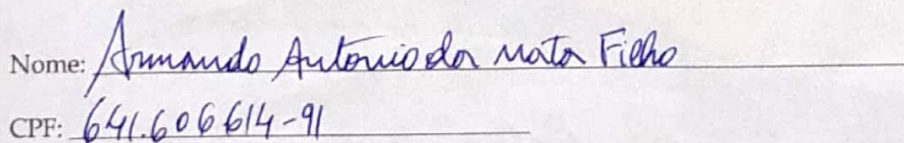 Nome: Armando Antonio da Mata Filho
CPF: 641.606614-91